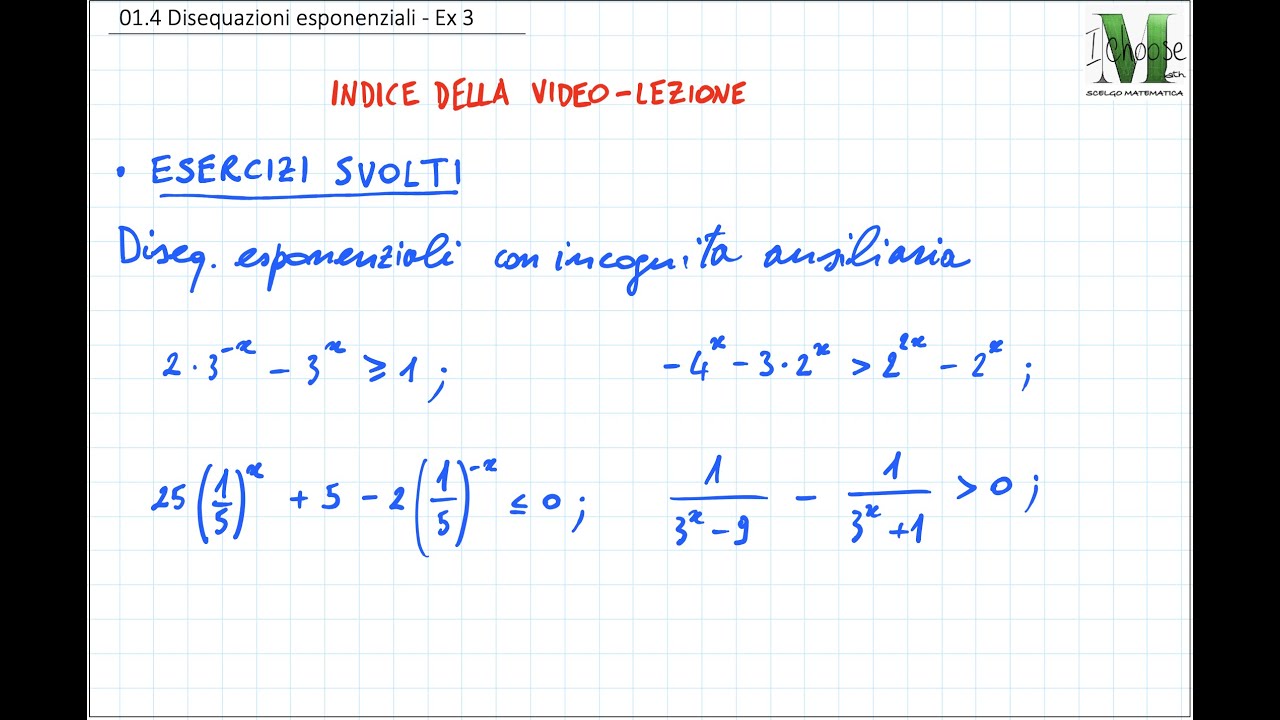 01.4 Disequazioni esponenziali - Ex 3
I Choose Math
SCELGO MATEMATICA
INDICE DELLA VIDEO-LEZIONE
• ESERCIZI SVOLTI
Diseq. esponenziali con incognita ausiliaria
2·3^{-x} - 3^x ≥ 1 ; -4^x - 3·2^x > 2^{2x} - 2^x ;
25(1/5)^x + 5 - 2(1/5)^{-x} ≤ 0 ; 1/(3^x - 9) - 1/(3^x + 1) > 0 ;